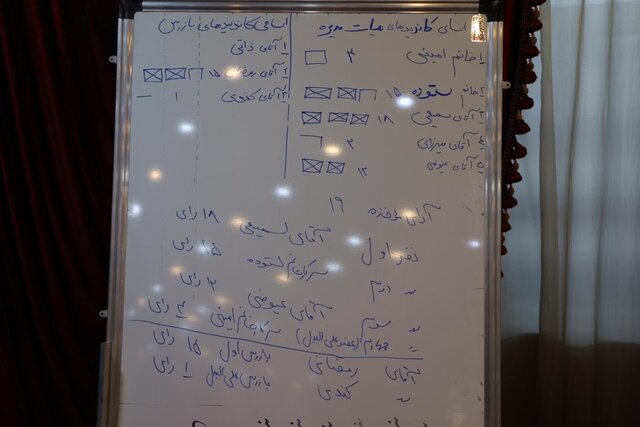 اسامی کاندیدهای هیات مدیره
۱ خانم امینی ۴
۲ خانم ستوده ۱۵
۳ آقای سمیعی ۱۸
۴ آقای میرزایی ۲
۵ آقای عیوضی ۱۲
اسامی کاندیدهای بازرس
۱ آقای ذاتی
۲ آقای ۱۵
۳ آقای کندی ۱
آرای ماخذه ۱۹
نفر اول آقای سمیعی ۱۸ رای
〃 دوم سرکار خانم ستوده ۱۵ رای
〃 سوم آقای عیوضی ۱۲ رای
〃 چهارم (عضو علی البدل) سرکار خانم امینی ۴ رای
آقای رمضانی بازرس اول ۱۵ رای
〃 کندی بازرس علی البدل ۱ رای